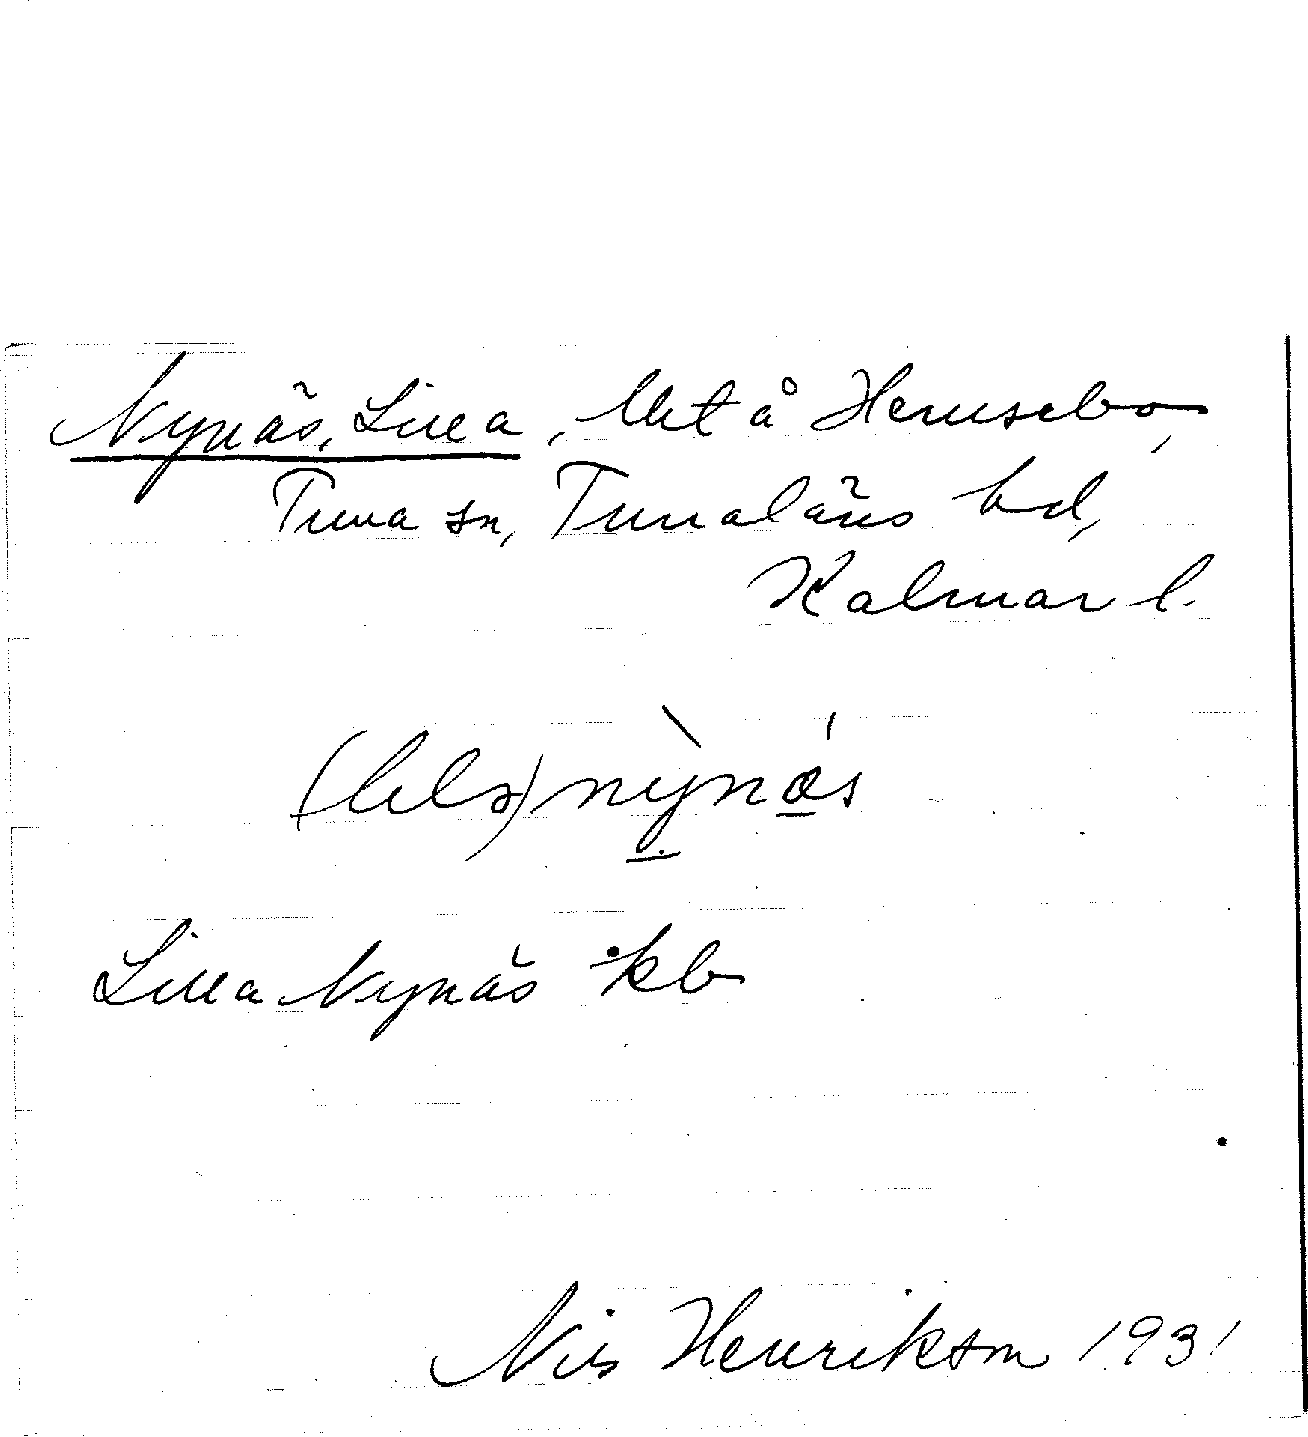 Nynäs, Lilla, lht å Hemsebo,
Tuna sn, Tunaläns hd,
Kalmar l.
(lila) nỳnäs
Lilla Nynäs kb
Nils Henrikson 1931